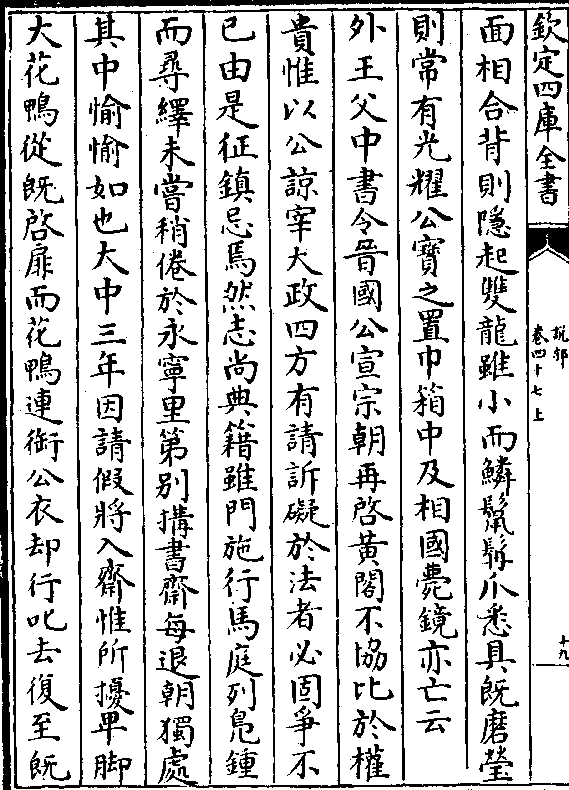 欽定四庫全書
說郛
卷四十七上
十九
面相合背則隱起雙龍雖小而鱗鬣髯爪悉具既磨瑩
則常有光耀公寳之置巾箱中及相國薨鏡亦亡云
外王父中書令晉國公宣宗朝再啓黄閣不協比於權
貴惟以公諒宰大政四方有請訴礙於法者必固爭不
已由是征鎮忌焉然志尚典籍雖門施行馬庭列鳬鍾
而尋繹未嘗稍倦於永寧里第别搆書齋每退朝獨處
其中愉愉如也大中三年因請假將入齋惟所擾卑脚
大花鴨從既啓扉而花鴨連銜公衣却行叱去復至既